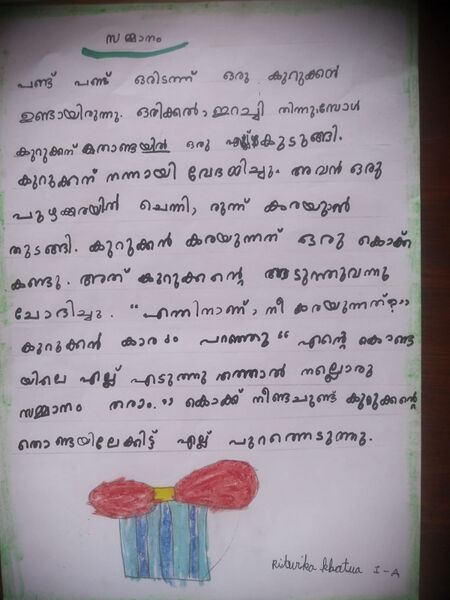 സമ്മാനം
പണ്ട് പണ്ട് ഒരിടത്ത് ഒരു കുറുക്കൻ
ഉണ്ടായിരുന്നു. ഒരിക്കൽ, ഇറച്ചി നിന്നുമ്പോൾ
കുറുക്കന് കതാണ്ടയിൽ ഒരു എല്ല് കുടുങ്ങി.
കുറുക്കന് നന്നായി വേദനിച്ചു. അവൻ ഒരു
പുഴക്കരയിൽ ചെന്നി, രുന്ന് കരയുാൻ
തുടങ്ങി. കുറുക്കൻ കരയുന്നത് ഒരു കൊക്ക്
കണ്ടു. അത് കുറുക്കന്റെ അടുത്തുവന്നു
ചോദിച്ചു. "എന്തിനാണ്, നീ കരയുന്നത്?"
കുറുക്കൻ കാര്യം പറഞ്ഞു "എന്റെ തൊണ്ട
യിലെ എല്ല് എടുത്തു തത്താൽ നല്ലൊരു
സമ്മാനം തരാം." കൊക്ക് നീണ്ടചുണ്ട് കുറുക്കന്റെ
തൊണ്ടയിലേക്കിട്ട് എല്ല് പുറത്തെടുത്തു.
Riturika Khatua I-A